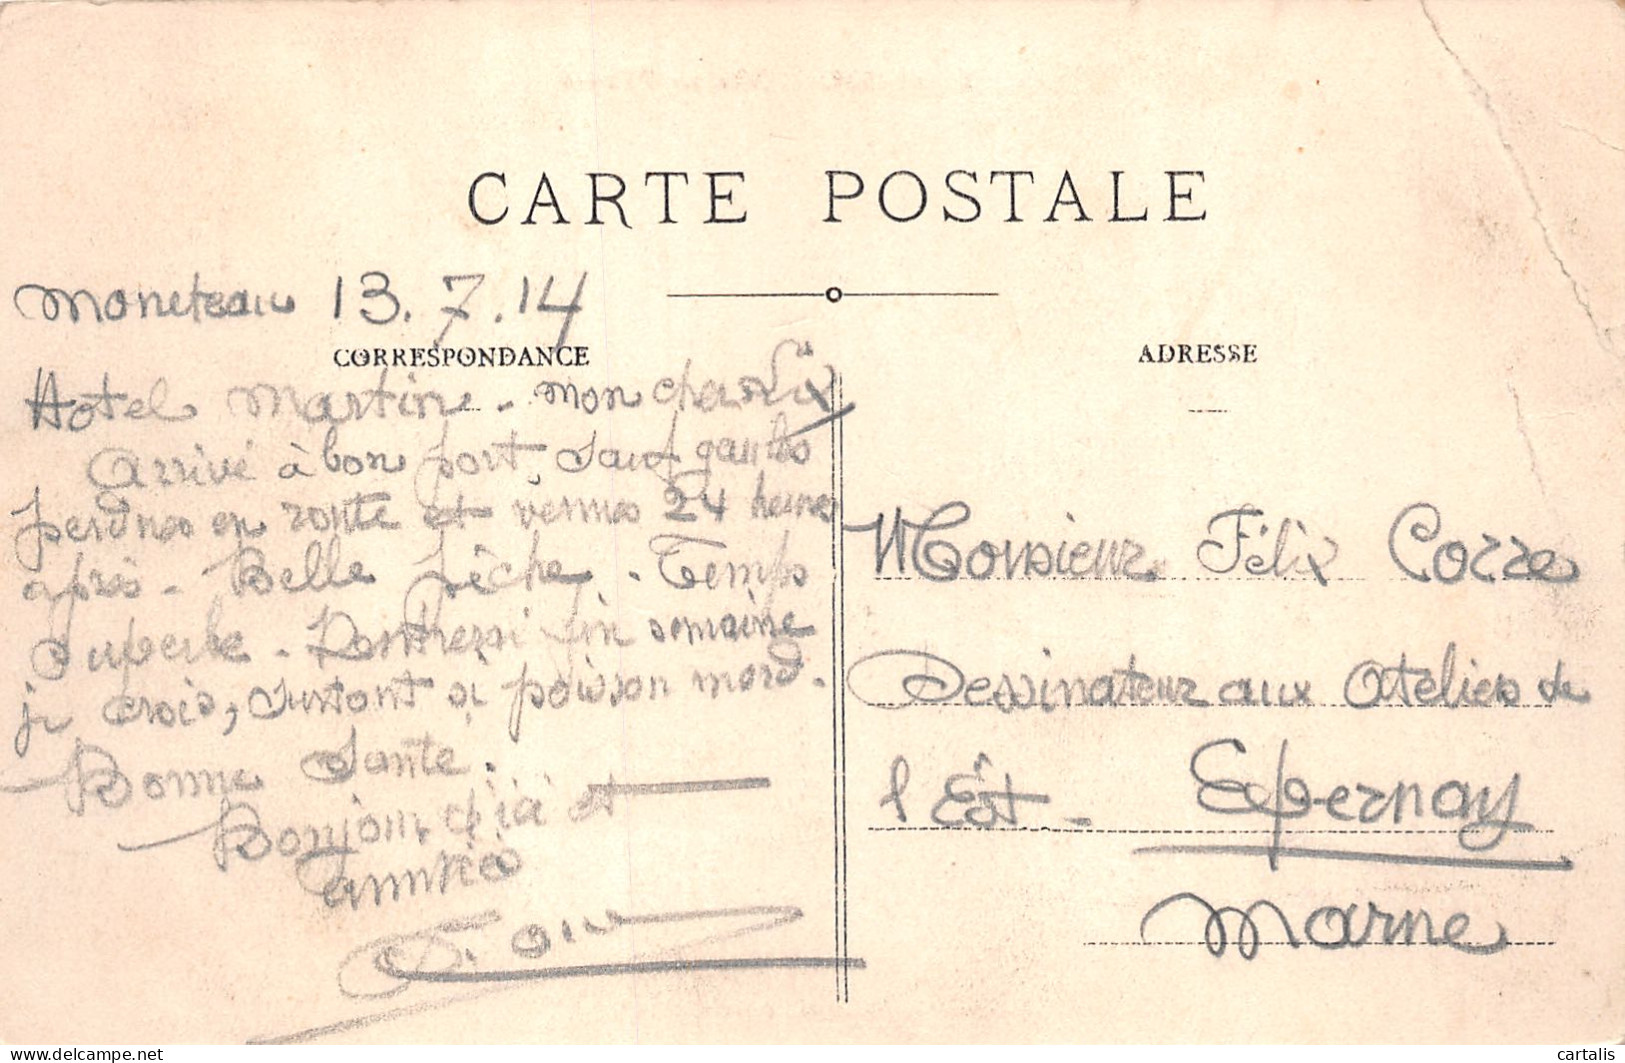 CARTE POSTALE
Moneteau 13.7.14
CORRESPONDANCE
Hotel Martin - Mon cher Félix
Arrivé à bon port, sauf gaules
perdues en route et venues 24 heures
après - Belle pêche. Temps
superbe - Rentrerai fin semaine
je crois, surtout si poisson mord.
Bonne Santé.
Bonjour d'ici et
amitiés
ADRESSE
Monsieur Félix Corre
Dessinateur aux Ateliers de
l'Est - Epernay
Marne
delcampe.net
cartalis